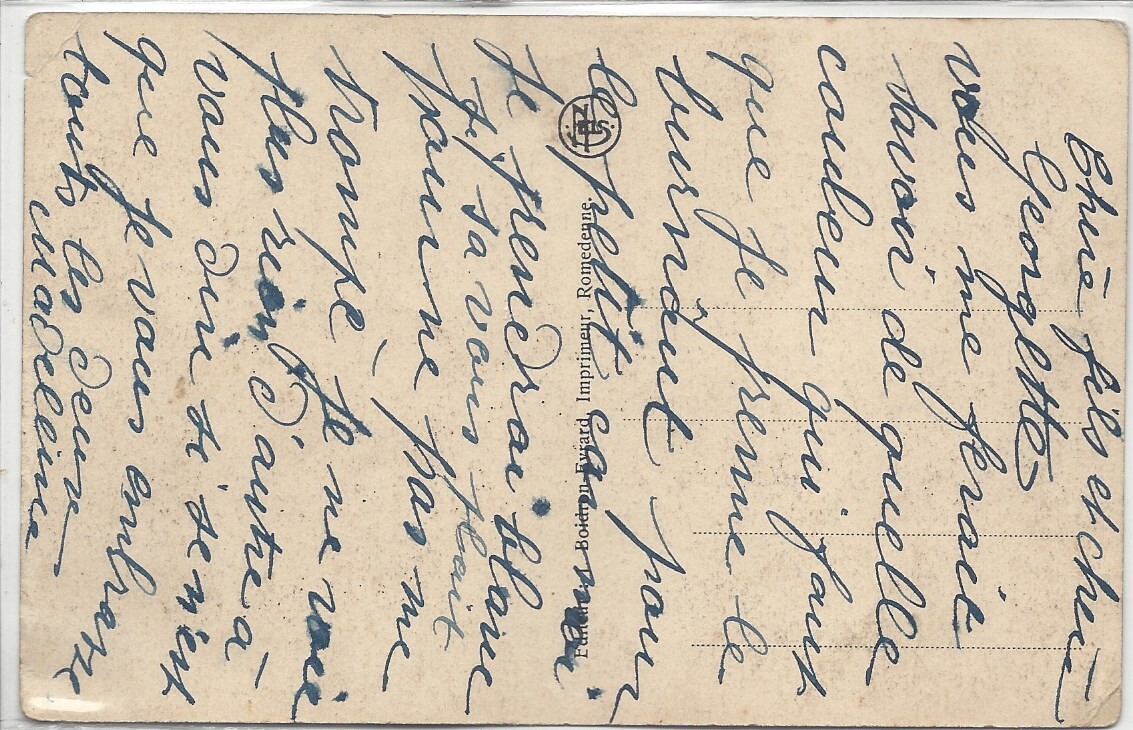 Chere fils et chere
Georgette
vous me ferait
savoir de quelle
couleur qui faut
que je prenne le
burnout pour
le petit car moi
je prenedrai blanc
si sa vous plait
pour ne pas me
trompé je ne vois
plus rien d'autre a
vous dire si se n'est
que je vous enbrasse
touts les deux
Madeleine
Boidron-Evrard Imprimeur, Romedenne.